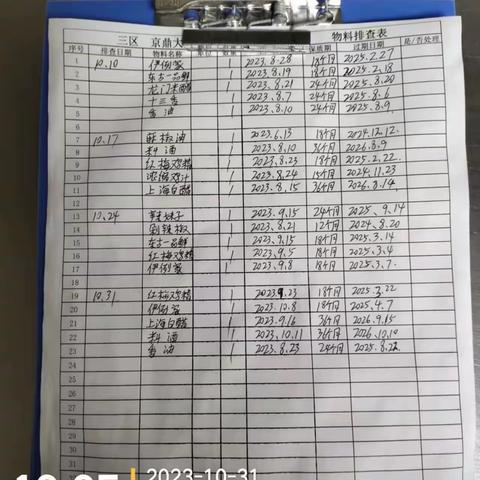 三区 京鼎大 物料排查表
序号 排查日期 物料名称 单位 数量 保质期 过期日期 是/否处理
1 10.10 伊例家 1 2023.8.28 18个月 2025.2.27
2 东古一品鲜 1 2023.8.19 18个月 2025.2.18
3 龙门米醋 1 2023.8.21 24个月 2025.8.20
4 十三香 1 2023.8.7 24个月 2025.8.6
5 香油 1 2023.8.10 24个月 2025.8.9
6
7 10.17 鲜椒油 1 2023.6.13 18个月 2024.12.12
8 料酒 1 2023.8.10 36个月 2026.8.9
9 红梅鸡精 1 2023.8.23 18个月 2025.2.22
10 浓缩鸡汁 1 2023.8.24 15个月 2024.11.23
11 上海白醋 1 2023.8.15 36个月 2026.8.14
12
13 10.24 辣妹子 1 2023.9.15 24个月 2025.9.14
14 剁辣椒 1 2023.8.21 12个月 2024.8.20
15 东古一品鲜 1 2023.9.15 18个月 2025.3.14
16 红梅鸡精 1 2023.9.5 18个月 2025.3.4
17 伊例家 1 2023.9.8 18个月 2025.3.7
18
19 10.31 红梅鸡精 1 2023.9.23 18个月 2025.3.22
20 伊例家 1 2023.10.8 18个月 2025.4.7
21 上海白醋 1 2023.9.16 36个月 2026.9.15
22 料酒 1 2023.10.11 36个月 2026.10.10
23 香油 1 2023.8.23 24个月 2025.8.22
24
25
26
27
28
29
30
31
2023-10-31